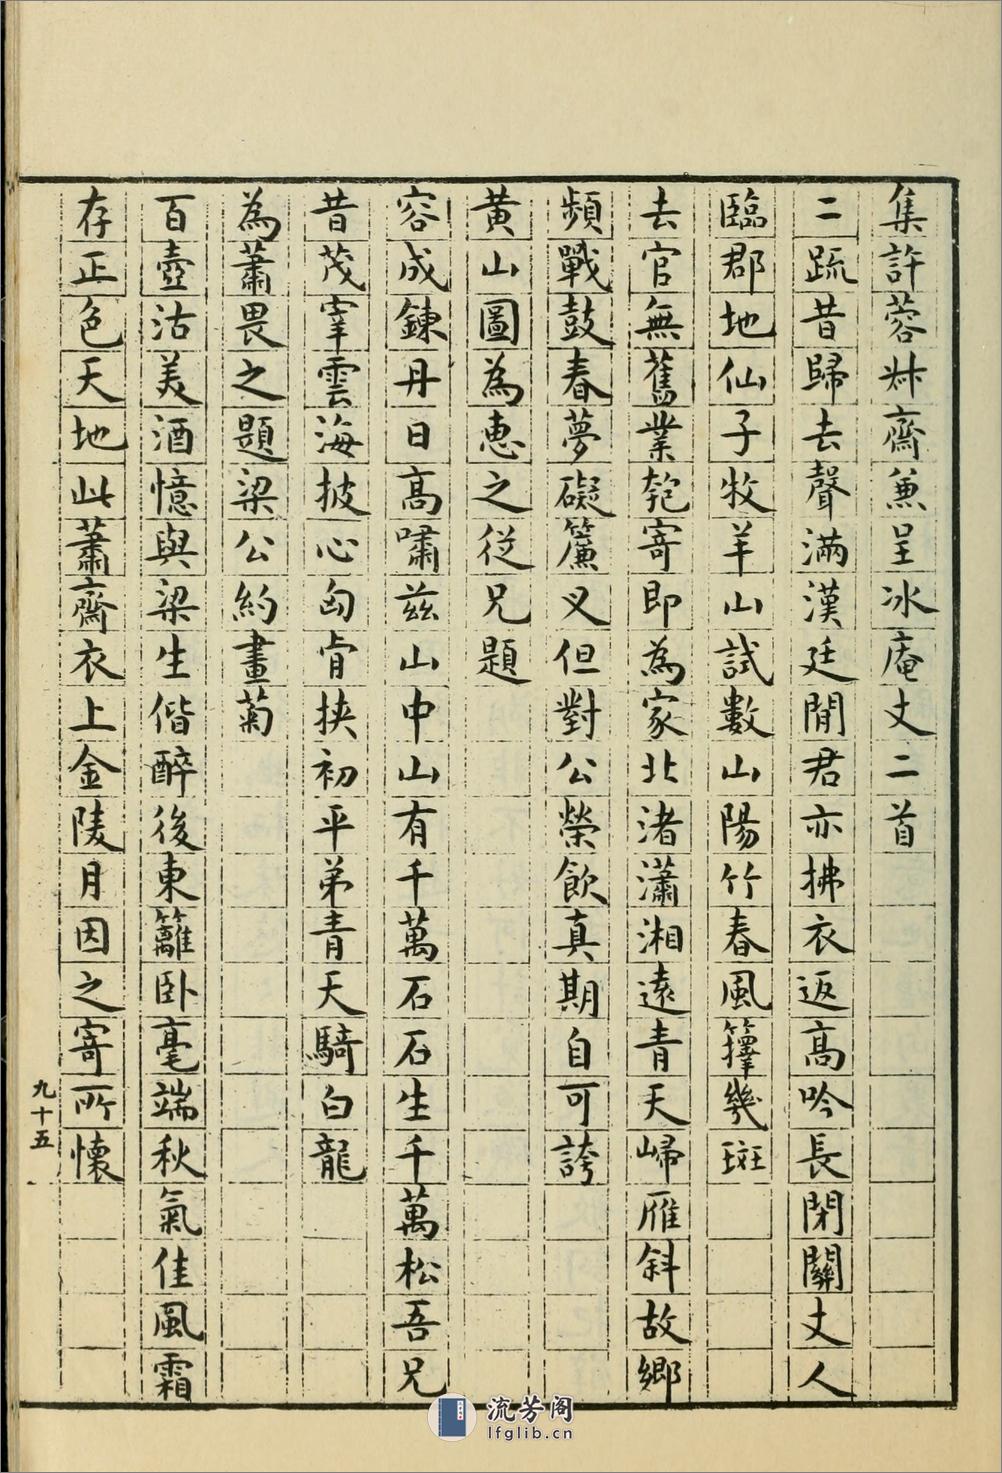 集許蓉村齋兼呈冰庵丈二首
二疏昔歸去聲滿漢廷閒君亦拂衣返高吟長閉關丈人
臨郡地仙子牧羊山試數山陽竹春風籜幾斑
去官無舊業匏寄即為家北渚瀟湘遠青天歸雁斜故鄉
頻戰鼓春夢礙簾叉但對公榮飲真期自可誇
黃山圖為惠之從兄題
容成鍊丹日高嘯茲山中山有千萬石石生千萬松吾兄
昔茂宰雲海披心匈肯挾初平弟青天騎白龍
為蕭畏之題梁公約畫菊
百壺沽美酒憶與梁生偕醉後東籬臥毫端秋氣佳風霜
存正色天地此蕭齋衣上金陵月因之寄所懷
九十五
流芳阁
lfglib.cn